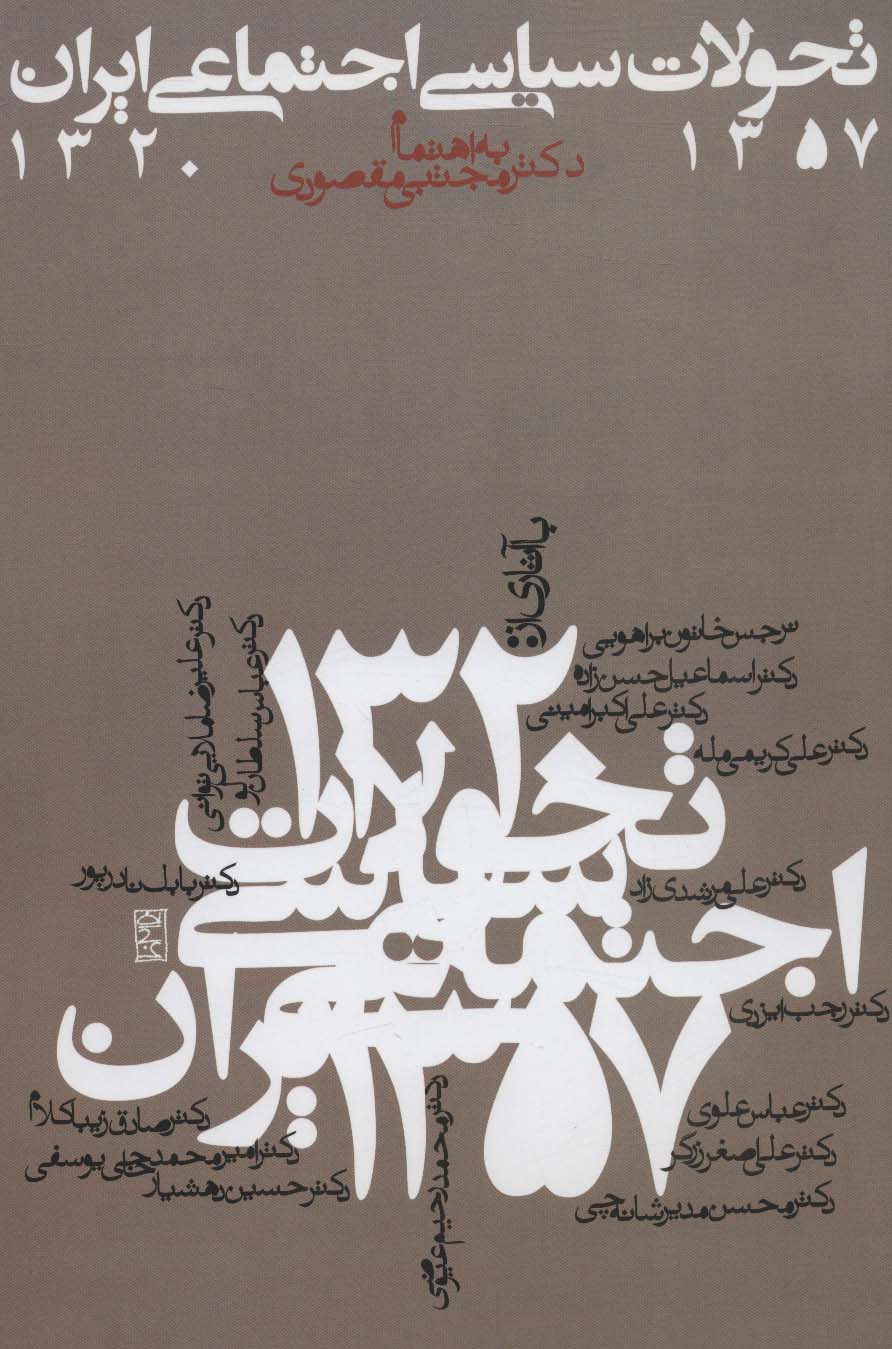 تحولات سیاسی اجتماعی ایران
۱۳۲۰
۱۳۵۷
به اهتمام
دکتر مجتبی مقصوری
با آثاری از:
نرجس خاتون براهویی
دکتر اسماعیل حسن زاده
دکتر علی اکبر امینی
دکتر علی کریمی مله
دکتر علیرضا ملایی توانی
دکتر عباس سلطان پو
۱۳۲۰
تحولات
سیاسی
اجتماعی
ایران
۱۳۵۷
دکتر علی مرشدی زاد
دکتر بابک نادرپور
دکتر رجب ایزری
دکتر عباس علوی
دکتر علی اصغر زرگر
دکتر محسن مدیر شانه چی
دکتر محمد رحیم عیوضی
دکتر صادق زیباکلام
دکتر امیر محمد حاجی یوسفی
دکتر حسین رهشیار